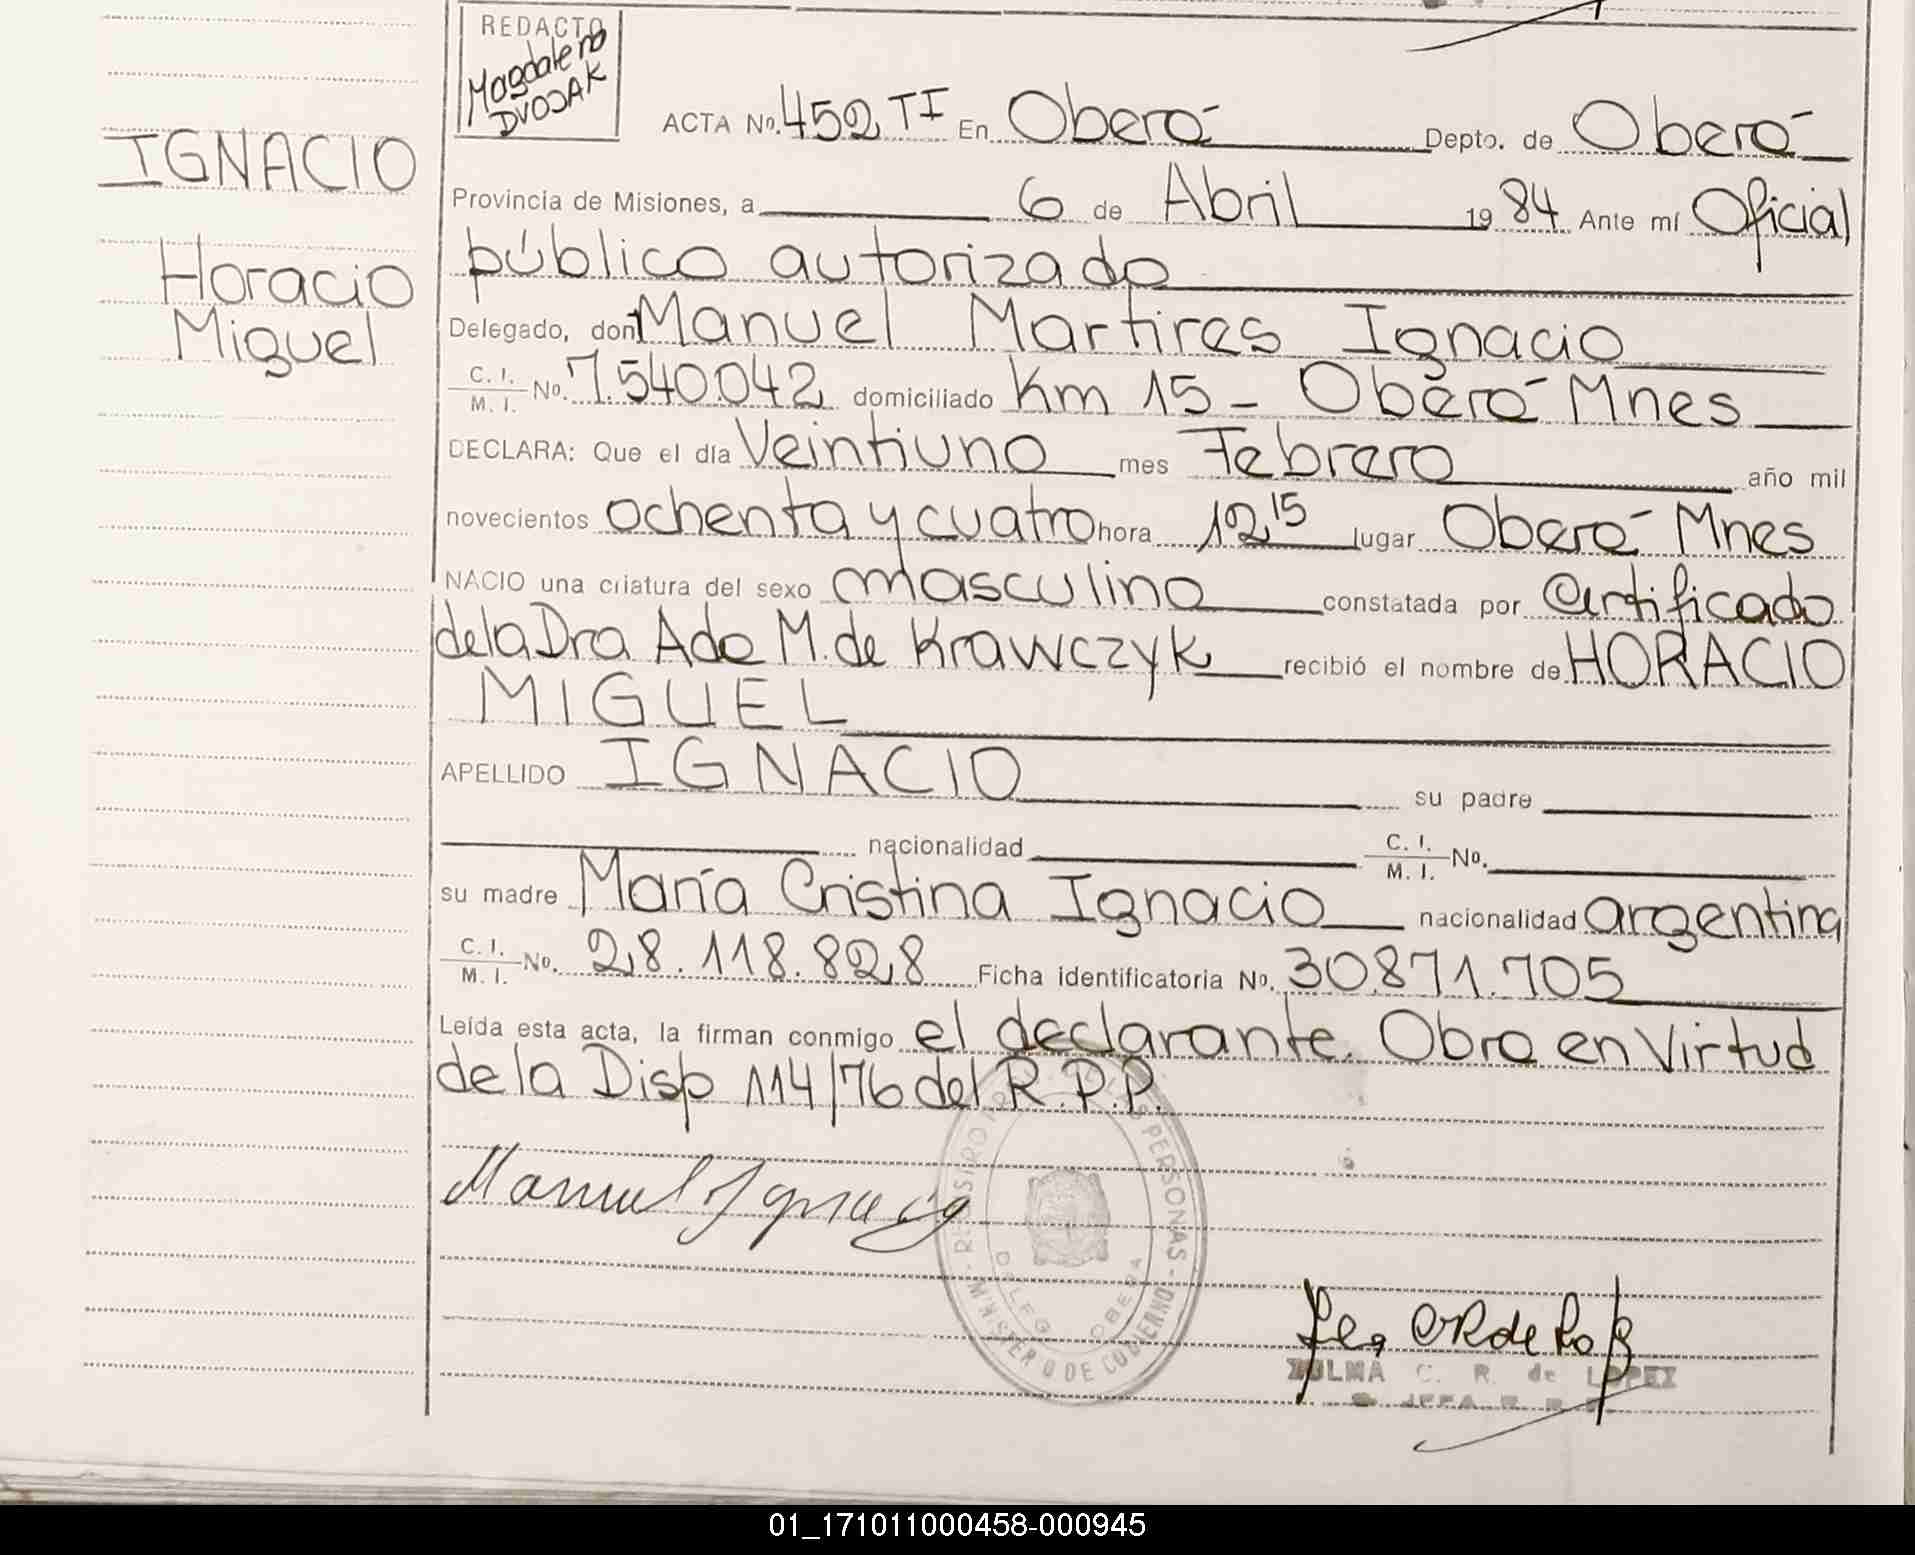 REDACTO
Magdalena
DVOJAK
ACTA No. 452 TI En Oberá Depto. de Oberá
IGNACIO
Provincia de Misiones, a 6 de Abril 1984 Ante mí Oficial
público autorizado
Horacio
Miguel
Delegado, don Manuel Martires Ignacio
C. I. M. I. No. 7.540.042 domiciliado Km 15 - Oberá Mnes
DECLARA: Que el día Veintiuno mes Febrero año mil
novecientos ochenta y cuatro hora 12 15 lugar Oberá Mnes
NACIO una criatura del sexo masculino constatada por Certificado
de la Dra Ada M. de Krawczyk recibió el nombre de HORACIO
MIGUEL
APELLIDO IGNACIO su padre
nacionalidad C. I. M. I. No.
su madre María Cristina Ignacio nacionalidad argentina
C. I. M. I. No. 28.118.828 Ficha identificatoria No. 30.871.705
Leída esta acta, la firman conmigo el declarante. Obra en Virtud
de la Disp 114/76 del R.P.P.
Manuel Ignacio
PERSONAS - MINISTERIO DE GOBIERNO
DELEG OBERA
ZULMA C. R. de LOPEZ
01_171011000458-000945